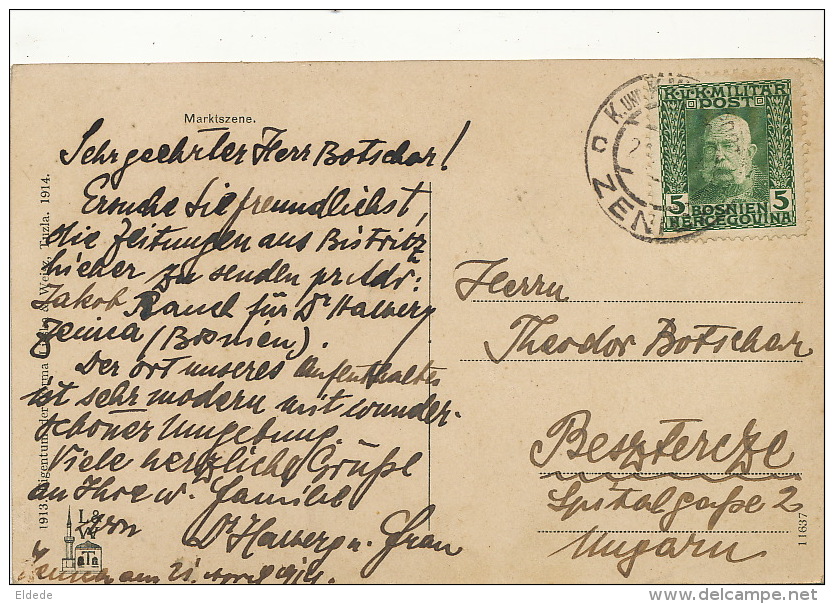 Marktszene.
Sehr geehrter Herr Botschar!
Ersuche Sie freundlichst,
die Zeitungen aus Bistritz
hieher zu senden pr Adr:
Jakob Rauch für Dr Halberg
Zenica (Bosnien).
Der Ort unseres Aufenthaltes
ist sehr modern mit wunder-
schöner Umgebung.
Viele herzliche Grüße
an Ihre w. Familie
Dr Halberg u. Frau
Zenica am 21. April 1914.
1913. Eigentum der Firma & Weisz, Tuzla. 1914.
L &
W
K. UND K.
ZENI
K.u.K. MILITÄR
POST
5 5
BOSNIEN
HERCEGOVINA
Herrn
Theodor Botschar
Besztercze
Spitalgaße 2
Ungarn
11637
Eldede
http://www.delcampe.net